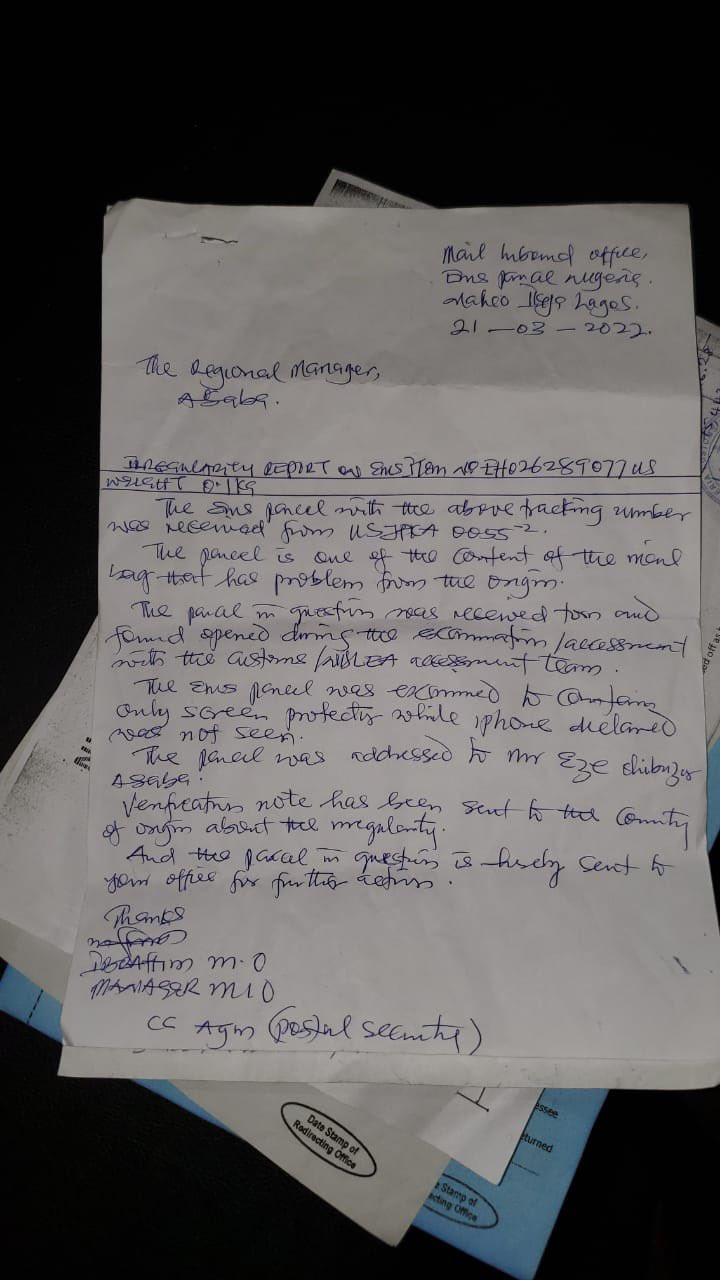 Mail Inbound office,
Ems parcel nigeria.
Ikeja Lagos.
21-03-2022.
The Regional Manager,
Asaba.
IRREGULARITY REPORT ON EMS ITEM NO EH026289077US
WEIGHT 0.1KG
The Ems parcel with the above tracking number
was received from USJFKA 0055
The parcel is one of the content of the mail
bag that has problem from the origin.
The parcel in question was received torn and
found opened during the examination/accessment
with the customs/NDLEA accessment team.
The Ems parcel was examined to contain
only screen protector while iphone declared
was not seen.
The parcel was addressed to Mr Eze Chibuzor
Asaba.
Verification note has been sent to the Country
of origin about the irregularity.
And the parcel in question is hereby sent to
your office for further action.
Thanks
IBRAHIM M.O
MANAGER MIO
CC Agm (postal security)
Date Stamp of
Redirecting Office
Stamp of
ecting Office
essee
eturned